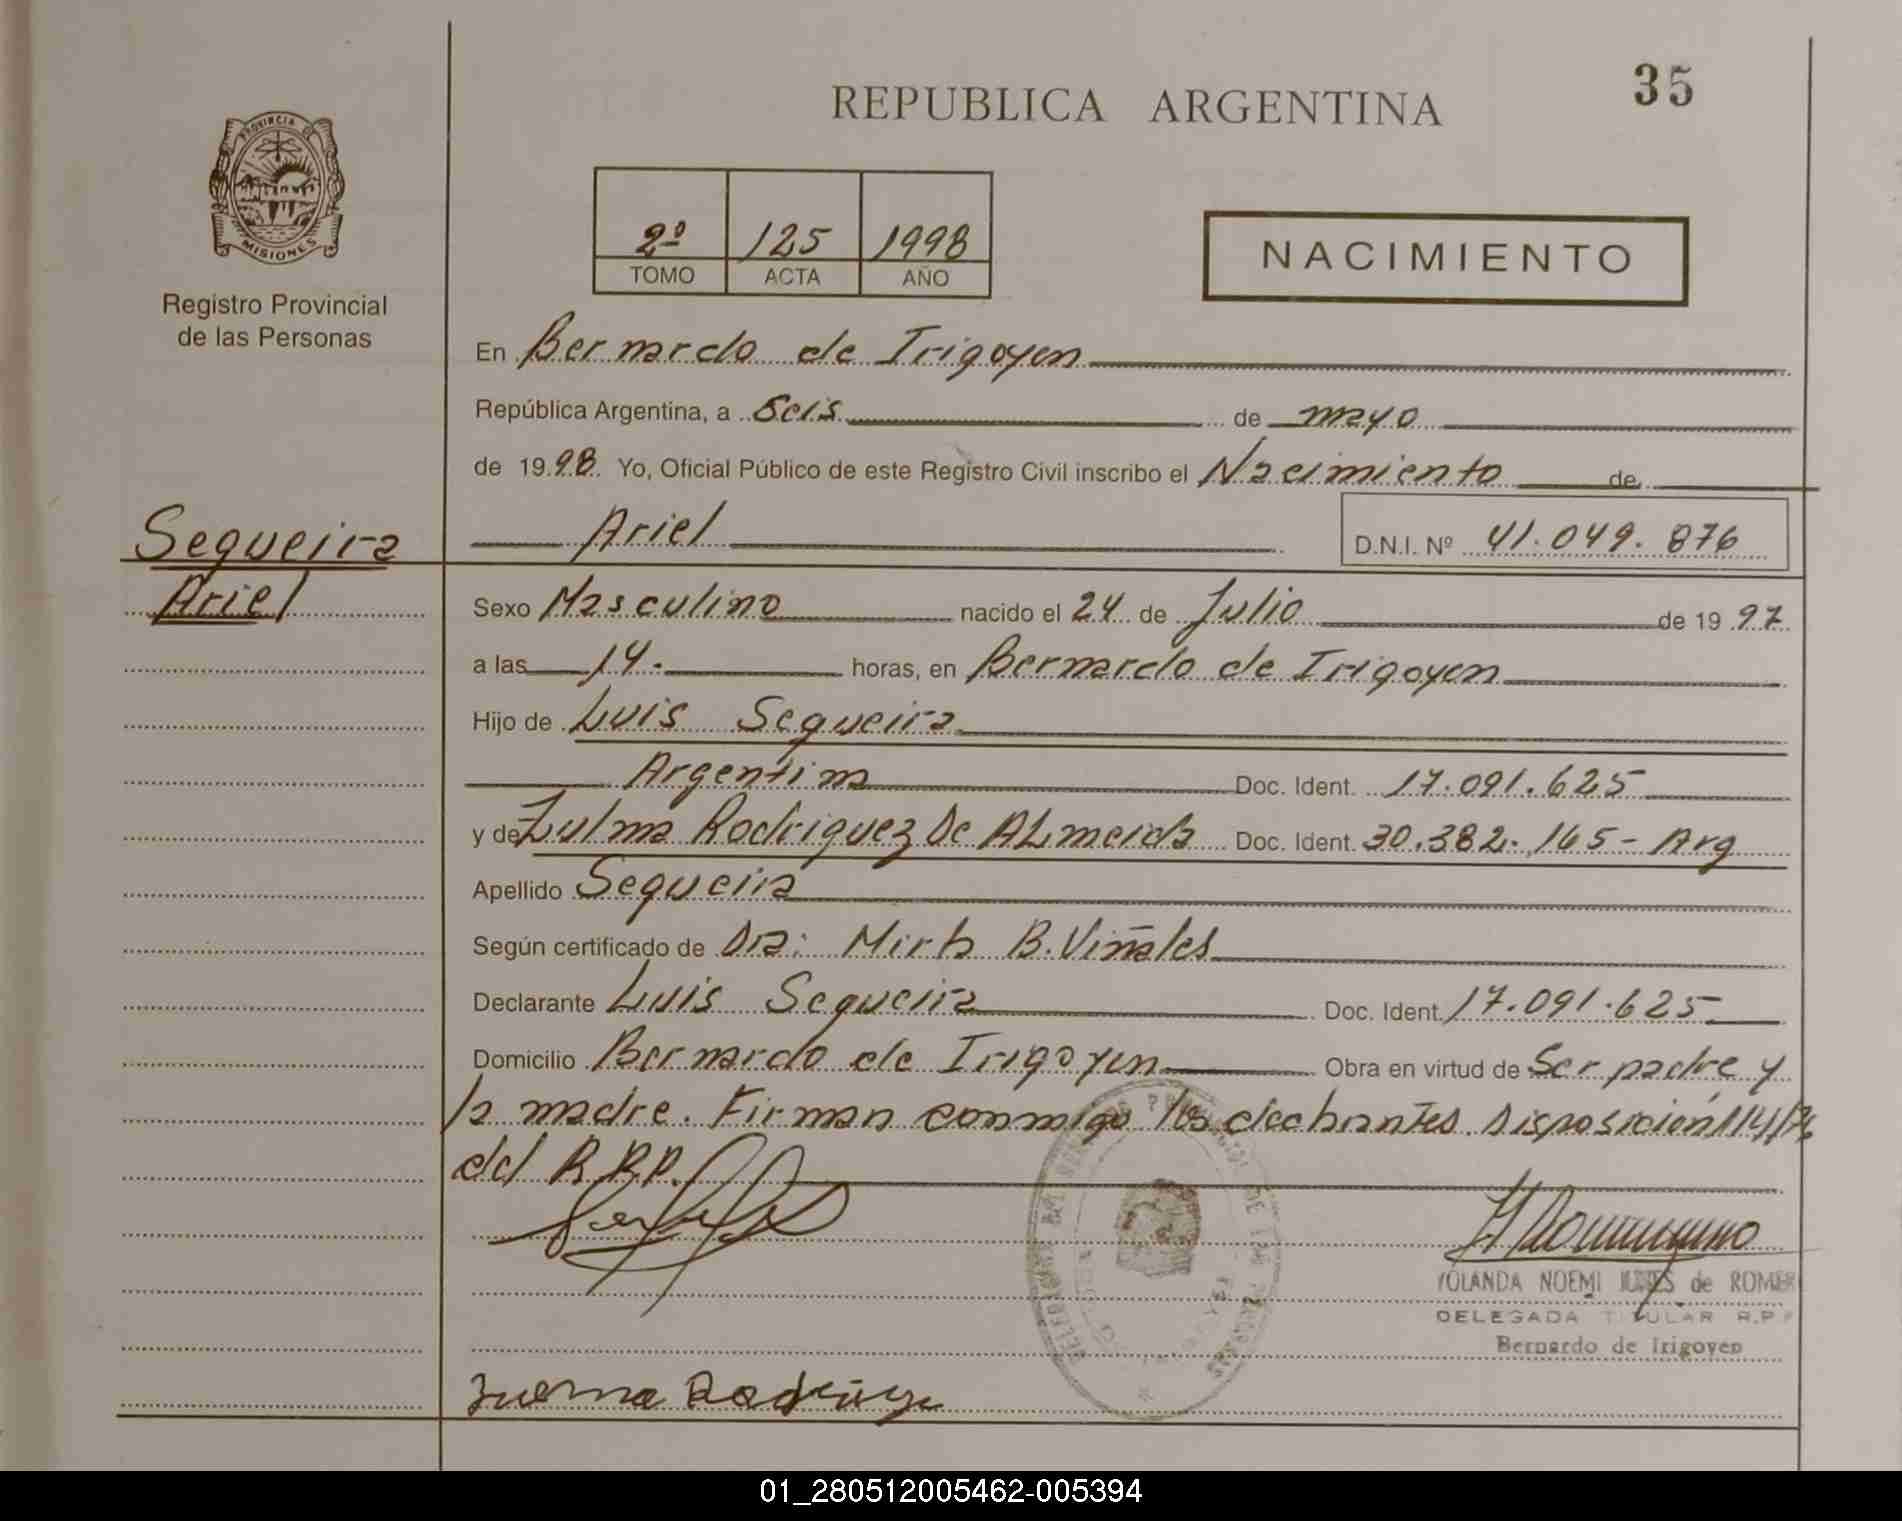 35
REPUBLICA ARGENTINA
PROVINCIA DE
MISIONES
Registro Provincial
de las Personas
2º 125 1998
TOMO ACTA AÑO
NACIMIENTO
En Bernardo de Irigoyen
República Argentina, a Seis de mayo
de 1998 Yo, Oficial Público de este Registro Civil inscribo el Nacimiento de
Sequeira
Ariel
Ariel
D.N.I. Nº 41.049.876
Sexo Masculino nacido el 24 de Julio de 1997
a las 14. horas, en Bernardo de Irigoyen
Hijo de Luis Sequeira
Argentina Doc. Ident. 17.091.625
y de Zulma Rodriguez De ALmeida Doc. Ident. 30.382.165- Arg
Apellido Sequeira
Según certificado de Dra: Mirta B. Viñales
Declarante Luis Sequeira Doc. Ident. 17.091.625
Domicilio Bernardo de Irigoyen Obra en virtud de Ser padre y
la madre. Firman conmigo los declarantes. Disposición 114/76
del R.R.P.
YOLANDA NOEMI de ROMER
DELEGADA TITULAR R.P.
Bernardo de Irigoyen
01_280512005462-005394